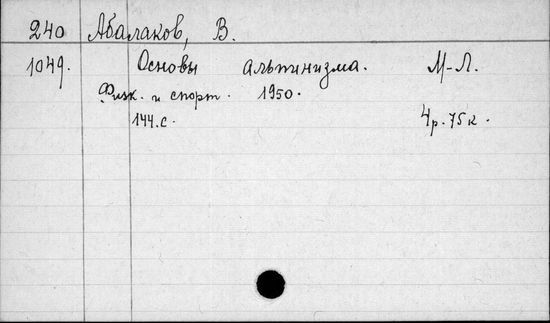 240 Абалаков, В.
1049. Основы альпинизма. М-Л.
Физк. и спорт. 1950.
144.с. 4р.75к.